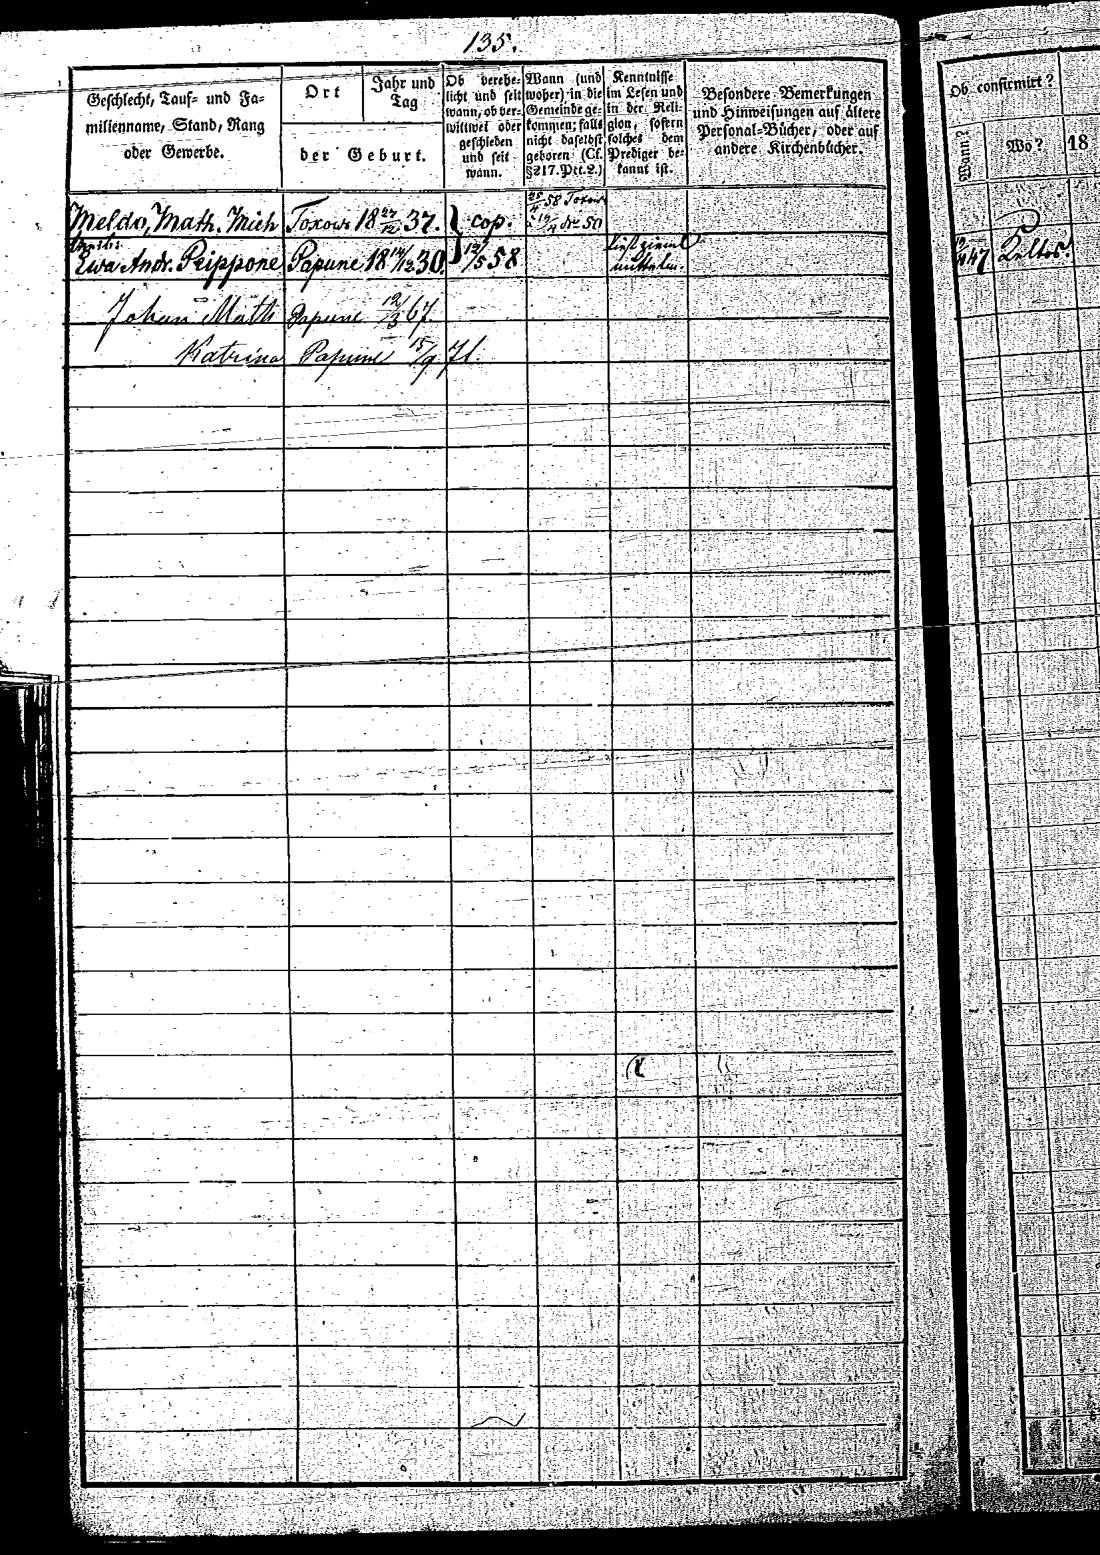 135.
Geschlecht, Tauf- und Fa-
milienname, Stand, Rang
oder Gewerbe.
Ort
Jahr und
Tag
der Geburt.
Ob verehe-
licht und seit
wann, ob ver-
wittwet oder
geschieden
und seit
wann.
Wann (und
woher) in die
Gemeinde ge-
kommen; falls
nicht daselbst
geboren (Cf.
§217. Pct. 2.)
Kenntnisse
im Lesen und
in der Reli-
gion, sofern
solches dem
Prediger be-
kannt ist.
Besondere Bemerkungen
und Hinweisungen auf ältere
Personal-Bücher, oder auf
andere Kirchenbücher.
Ob confirmirt?
Wann?
Wo?
18
Meldo, Math. Mich Toxowo 18 27/12 37. } cop. 58 Toxowo
50
Ewa Andr. Peippone Papune 18 14/12 30. 12/5 58
47 Keltos.
Johan Math Papune 12/3 67
Katrina Papune 15/9 71.